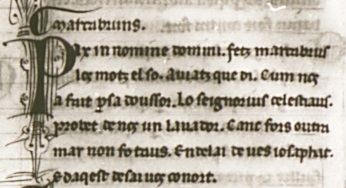 Marcabruns.
Pax in nomine domini. fetz marcabrus
los motz el so. Auiatz que di. Cum nos
a fait p sa doussor. Lo seignorius celestiaus.
probet de nos un lauador. Canc fors outra
mar non fo taus. En de lai de ues iosaphat.
E daqest de sai uos conort.